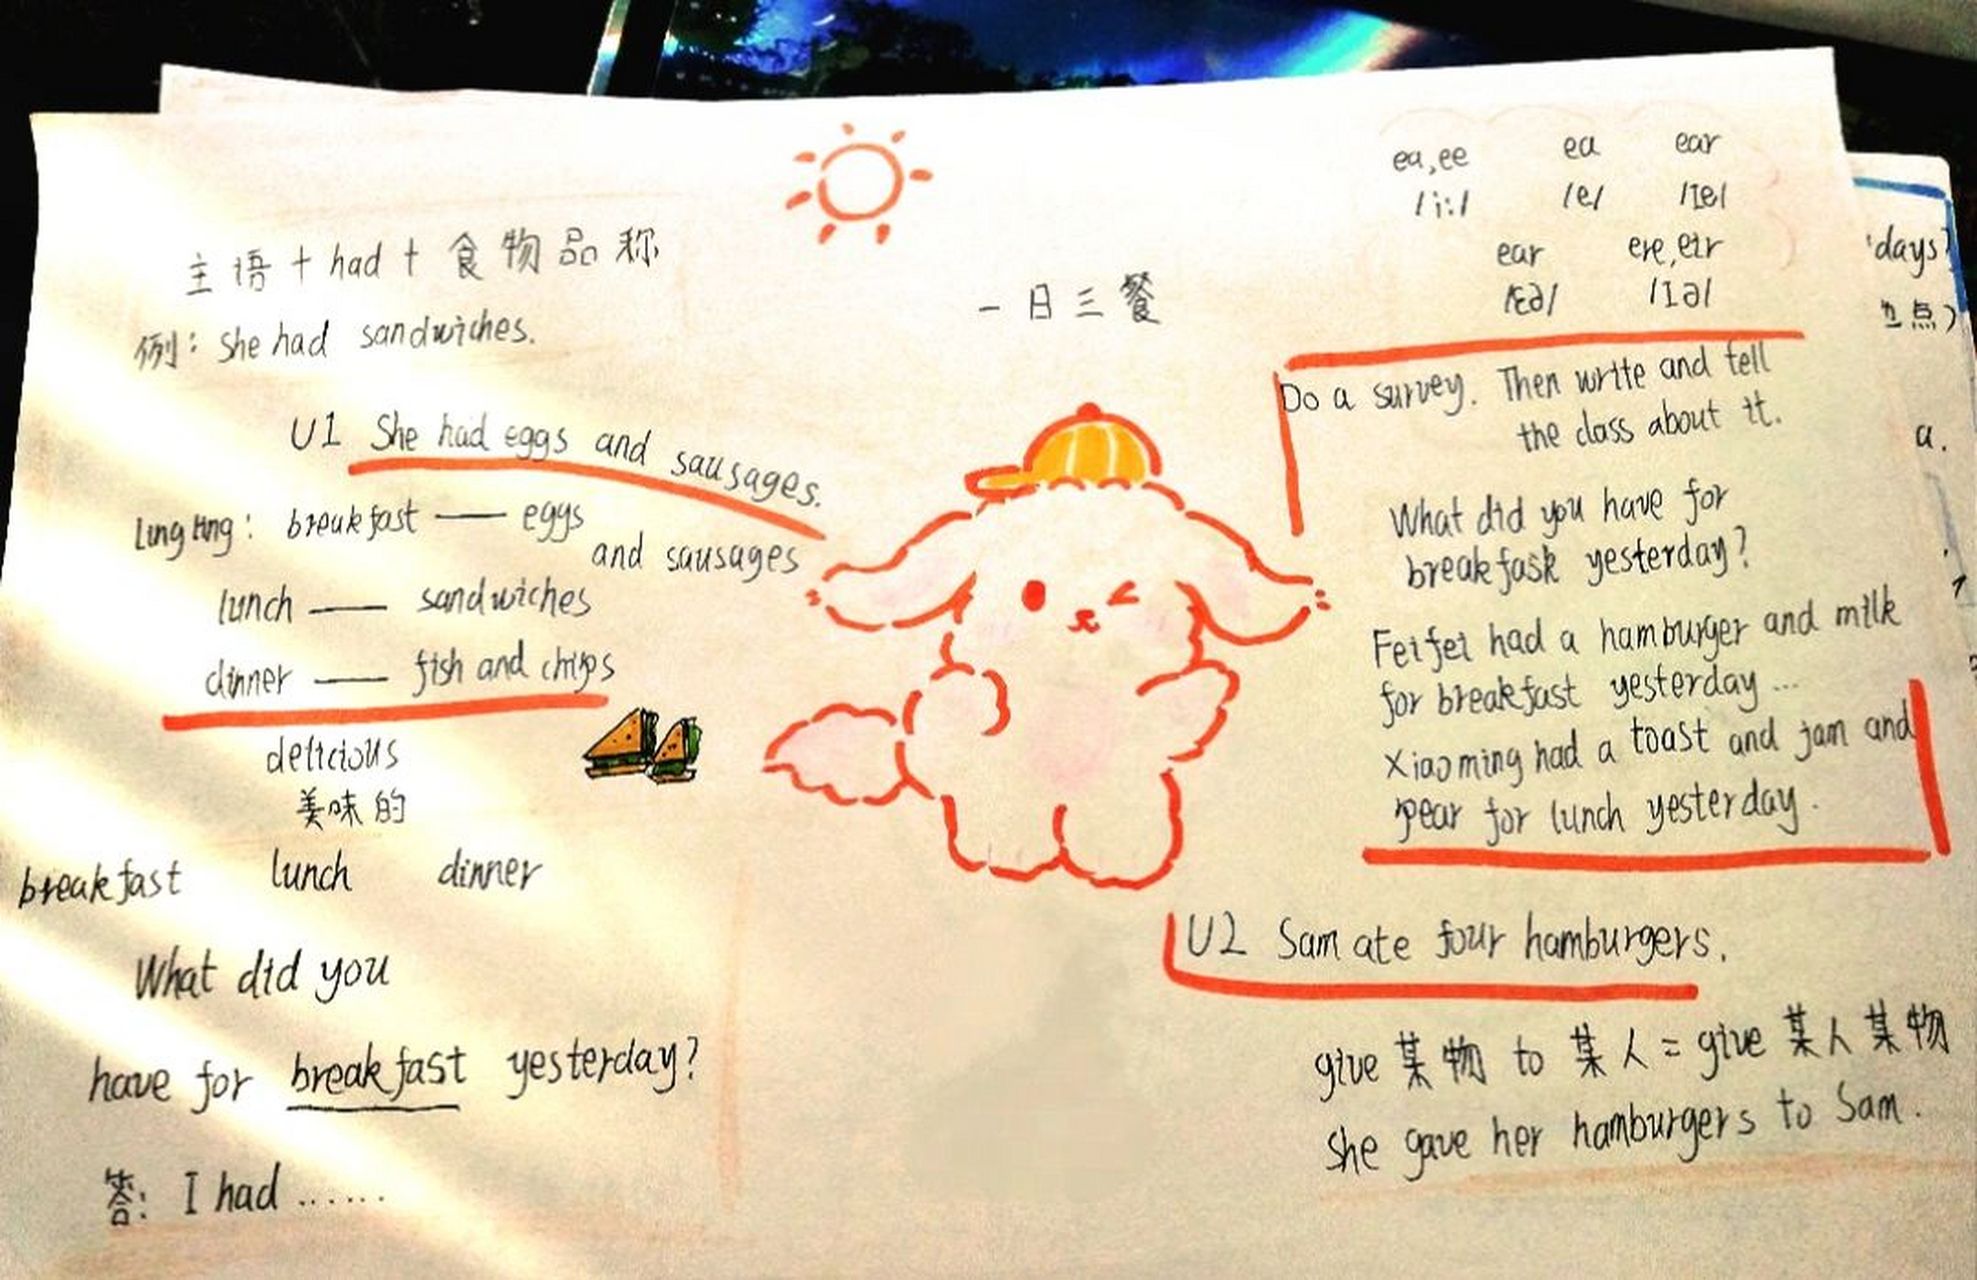 主语+had+食物品称
例: She had sandwiches.
U1 She had eggs and sausages.
Lingling: breakfast —— eggs
and sausages
lunch —— sandwiches
dinner —— fish and chips
delicious
美味的
breakfast lunch dinner
What did you
have for breakfast yesterday?
答: I had ......
一日三餐
ea,ee ea ear
/i:/ /e/ /Ie/
ear ere,eir
/ɛə/ /Iə/
Do a survey. Then write and tell
the class about it.
What did you have for
breakfask yesterday?
Feifei had a hamburger and milk
for breakfast yesterday ...
Xiaoming had a toast and jam and
pear for lunch yesterday.
U2 Sam ate four hamburgers.
give 某物 to 某人 = give 某人某物
She gave her hamburgers to Sam.
days
点)
a.